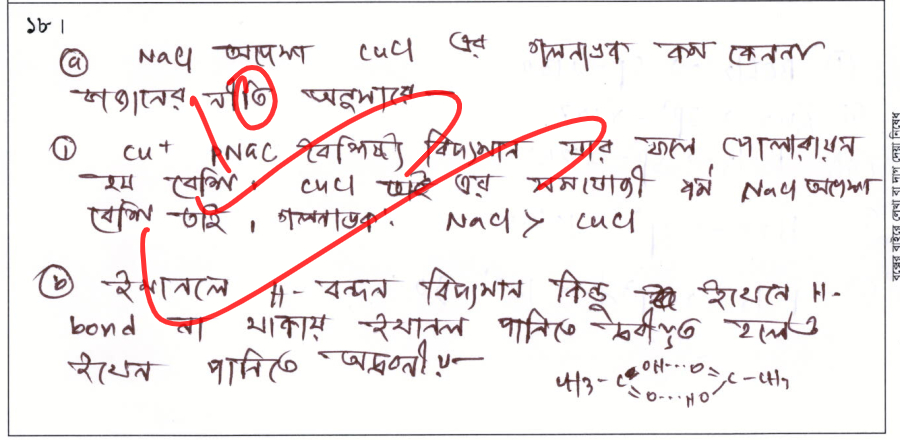 ১৮।
ⓐ NaCl অপেক্ষা CuCl এর গলনাঙ্ক কম কেননা
ফাজানের নীতি অনুসারে—
① Cu+ PNGC বৈশিষ্ট্য বিদ্যমান যার ফলে পোলারায়ন
হয় বেশি। CuCl তাই এর সমযোজী ধর্ম NaCl অপেক্ষা
বেশি তাই, গলনাঙ্ক: NaCl > CuCl
ⓑ ইথানলে H- বন্ধন বিদ্যমান কিন্তু ইথেনে H-
bond না থাকায় ইথানল পানিতে দ্রবীভূত হলেও
ইথেন পানিতে অদ্রবনীয়—
CH3-C OH...O C-CH3
O...HO